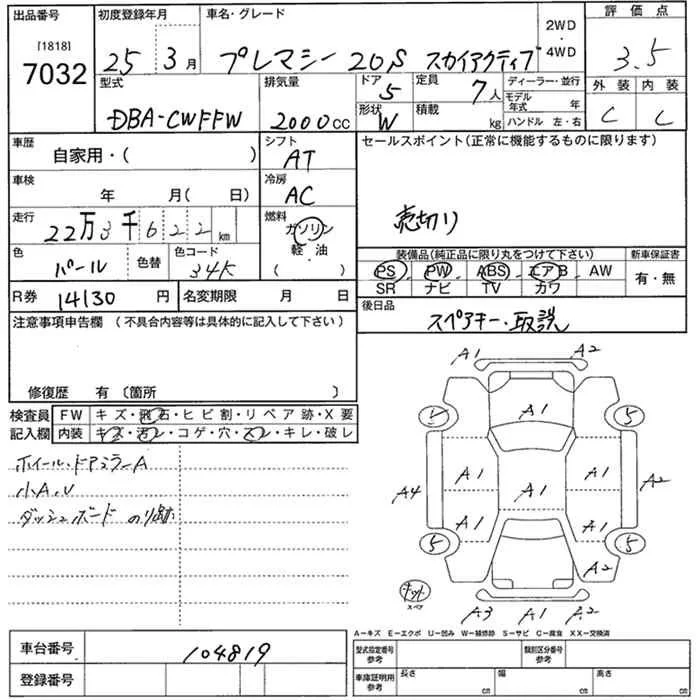 出品番号
[1818]
7032
初度登録年月
25 3月
車名・グレード
プレマシー 20S スカイアクティブ
2WD
・
4WD
評価点
3.5
外装 内装
C C
型式
DBA-CWFFW
排気量
2000cc
ドア
5
形状
W
定員
7人
積載
kg
ディーラー・並行
モデル年式 年
ハンドル 左・右
車歴
自家用・( )
シフト
AT
車検
年 月( 日)
冷房
AC
走行
22万3千622km
燃料
ガソリン
軽・油
( )
色
パール
色替
色コード
34K
R券 14130 円
名変期限 月 日
セールスポイント(正常に機能するものに限ります)
売切り
装備品(純正品に限り丸をつけて下さい)
PS PW ABS エアB AW
SR ナビ TV カワ
新車保証書
有・無
後日品
スペアキー・取説
注意事項申告欄 (不具合内容等は具体的に記入して下さい)
修復歴 有 〔箇所 〕
検査員記入欄
FW キズ・飛石・ヒビ割・リペア跡・X要
内装 キズ・汚レ・コゲ・穴・スレ・キレ・破レ
ホイール・ドアミラーA
小A、U
ダッシュボード
A1 A2
A1
5
A1 A1 A1 A2
A4
A1 A1 A1
5 5
A2
キット
スペア
A3 A1 A2
A-キズ E-エクボ U-凹み W-補修跡 S-サビ C-腐食 XX-交換済
車台番号
104819
登録番号
型式指定番号
参考
類別区分番号
参考
車庫証明用
参考
長さ cm
幅 cm
高さ cm